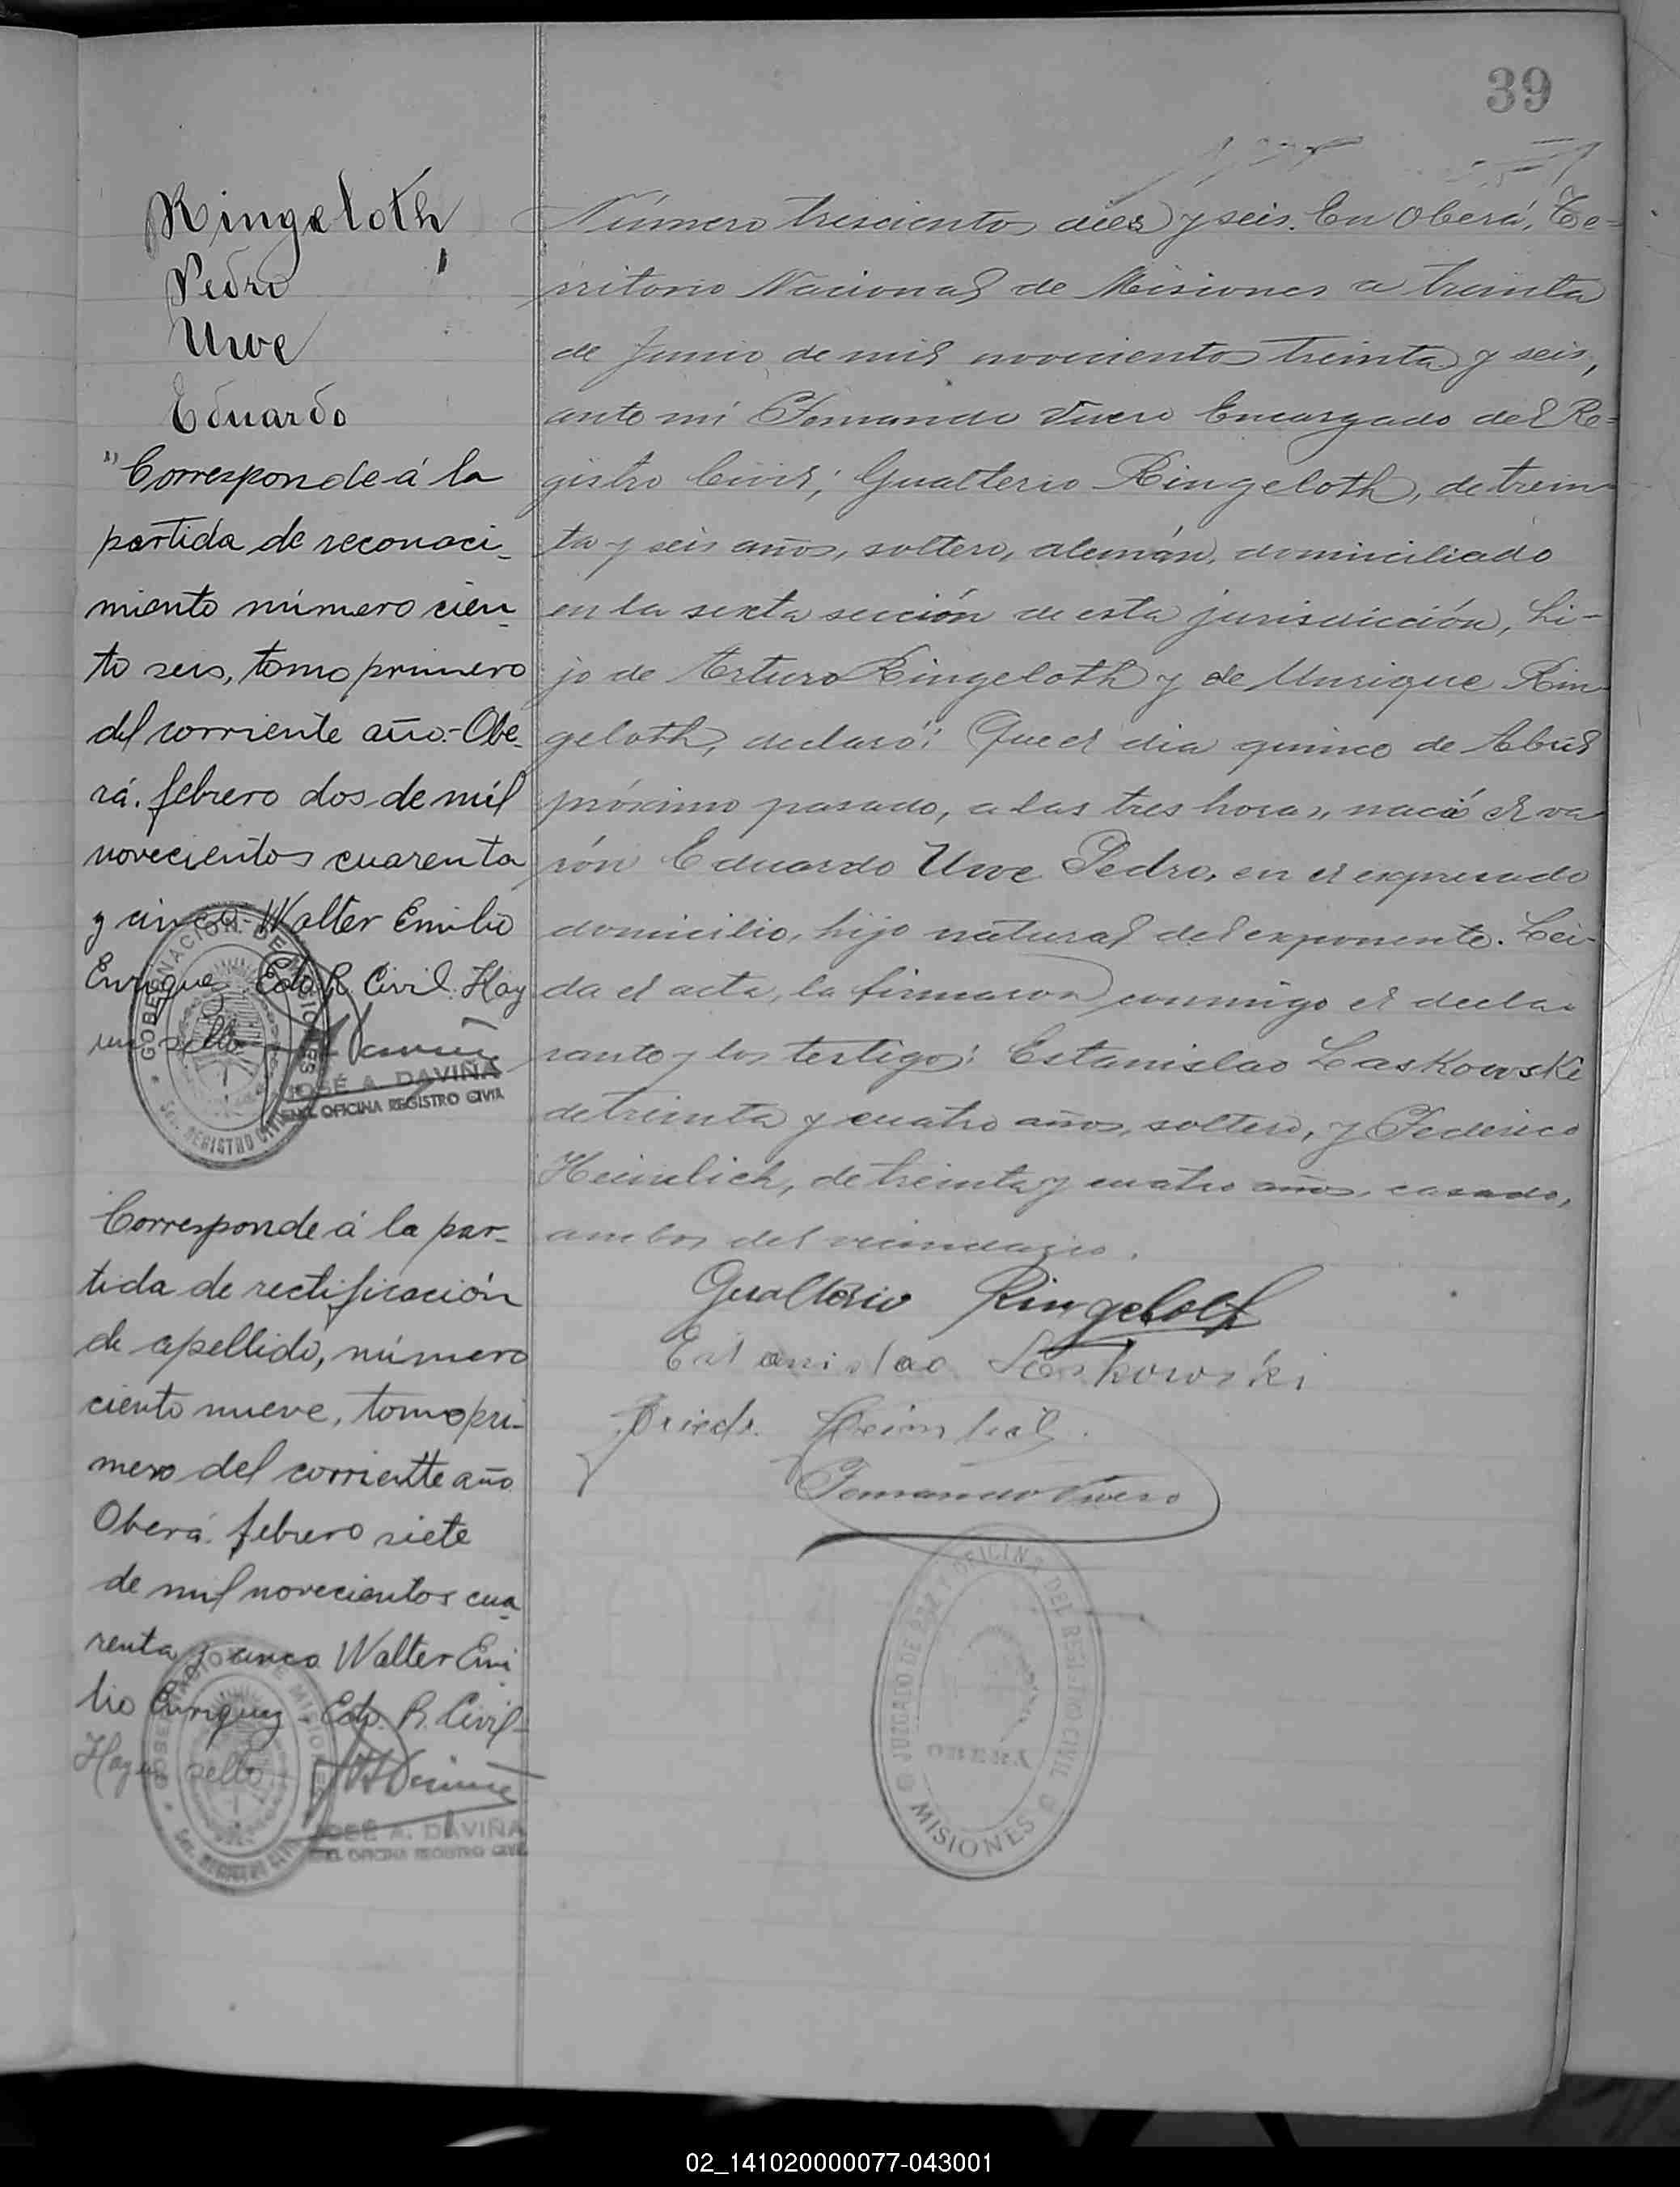 39
Ringeloth,
Pedro
Uwe
Eduardo
"Corresponde á la
partida de reconoci-
miento número cien-
to seis, tomo primero
del corriente año.-Obe-
rá. febrero dos de mil
novecientos cuarenta
y cinco.- Walter Emilio
Enriquez Edo. R. Civil. Hay
un sello
GOBERNACION DE MISIONES
Sec. REGISTRO CIVIL
JOSÉ A. DAVIÑA
OFICINA REGISTRO CIVIL
Corresponde á la par-
tida de rectificación
de apellido, número
ciento nueve, tomo pri-
mero del corriente año
Oberá. febrero siete
de mil novecientos cua-
renta y cinco Walter Emi-
lio Enriquez - Edo. R. Civil-
Hay un sello
GOBERNACION DE MISIONES
Sec. REGISTRO CIVIL
JOSÉ A. DAVIÑA
OFICINA REGISTRO CIVIL
Número trescientos diez y seis. En Oberá, Te=
rritorio Nacional de Misiones a treinta
de Junio de mil novecientos treinta y seis,
ante mi Fernando Vivero Encargado del Re=
gistro Civil; Gualterio Ringeloth, de trein-
ta y seis años, soltero, alemán, domiciliado
en la sexta sección de esta jurisdicción, hi-
jo de Arturo Ringeloth y de Unrique Rin-
geloth, declaró: Que el dia quince de Abril
próximo pasado, a las tres horas, nació el va-
rón Eduardo Uwe Pedro, en el expresado
domicilio, hijo natural del exponente. Lei-
da el acta, la firmaron conmigo el decla-
rante y los testigos: Estanislao Laskowski
de treinta y cuatro años, soltero, y Federico
Heimlich, de treinta y cuatro años, casado,
ambos del vecindario.
Gualterio Ringeloth
Estanislao Laskowski
Friedr. Heimlich.
Fernando Vivero
JUZGADO DE PAZ Y OFICINA DEL REGISTRO CIVIL
MISIONES
02_141020000077-043001